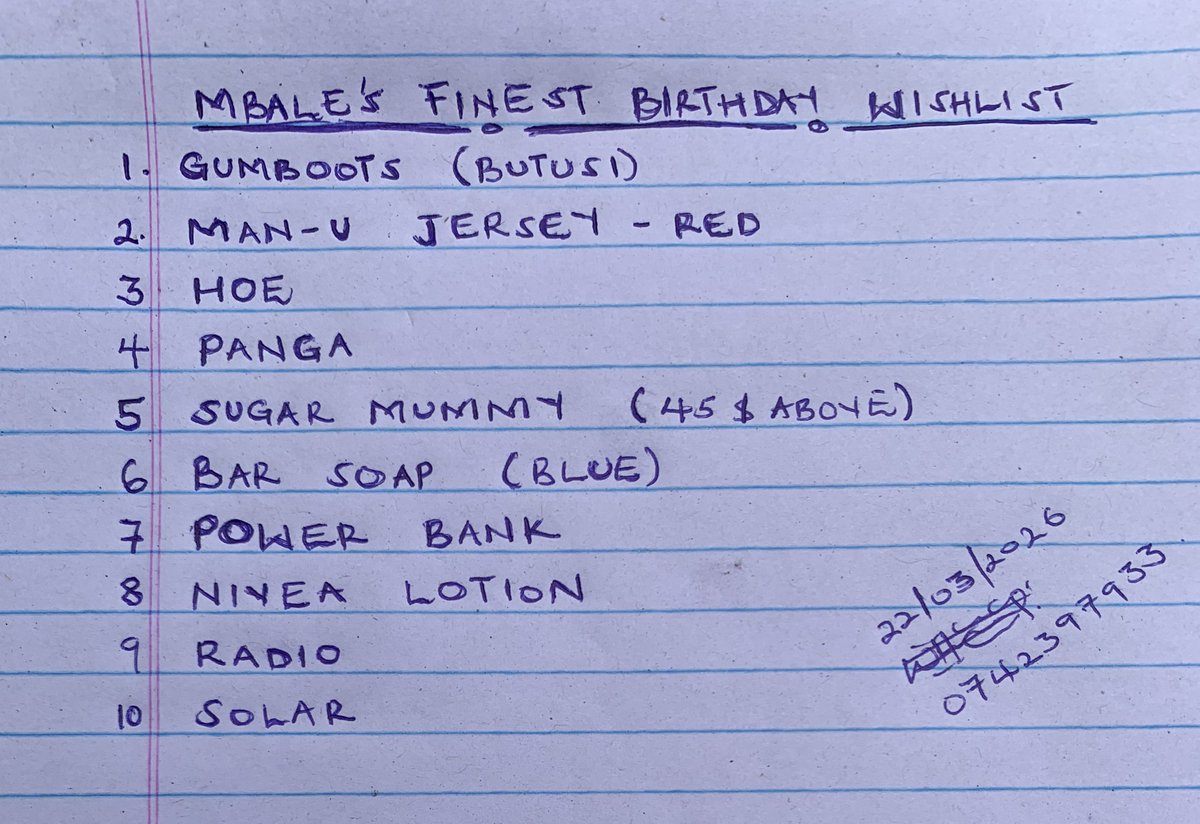 MBALE'S FINEST BIRTHDAY WISHLIST
1. GUMBOOTS (BUTUSI)
2. MAN-U JERSEY - RED
3 HOE
4 PANGA
5 SUGAR MUMMY (45 $ ABOVE)
6 BAR SOAP (BLUE)
7 POWER BANK
8 NIVEA LOTION
9 RADIO
10 SOLAR
22/03/2026
0742397933